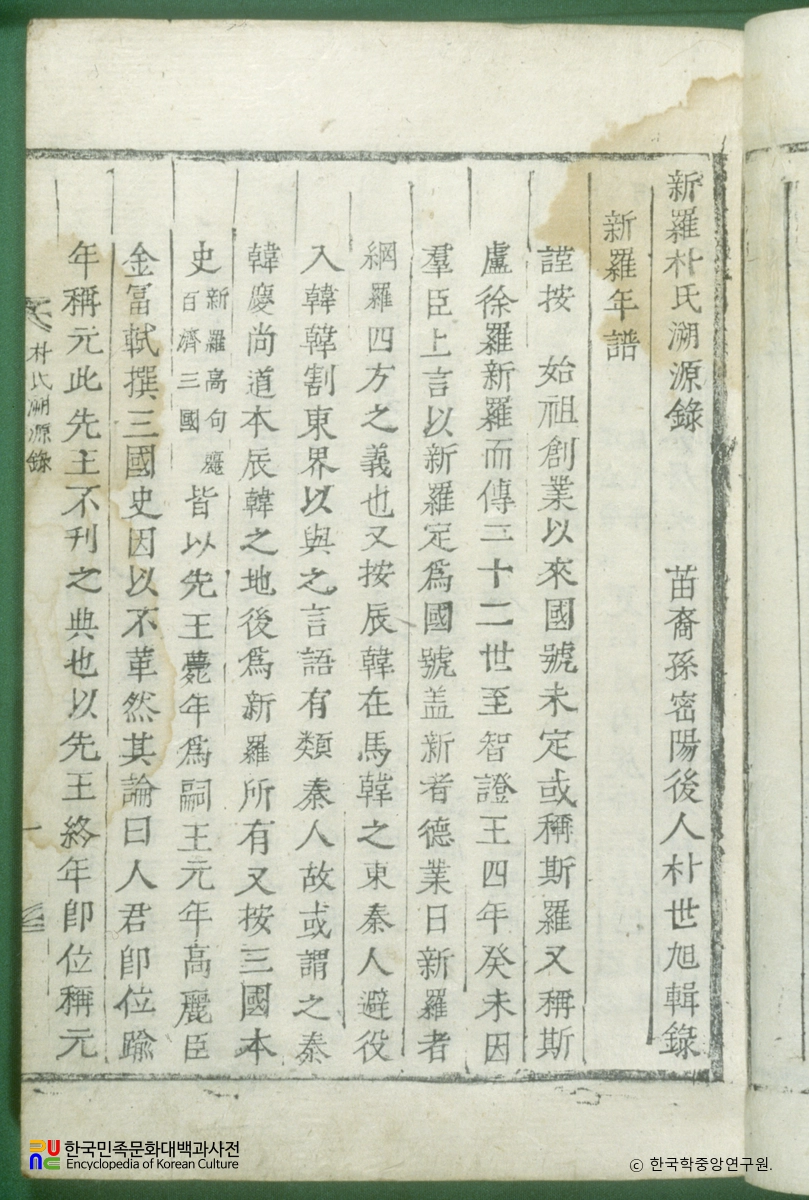 新羅朴氏溯源錄 苗裔孫密陽後人朴世旭輯錄
新羅年譜
謹按 始祖創業以來國號未定或稱斯羅又稱斯
盧徐羅新羅而傳二十二世至智證王四年癸未因
羣臣上言以新羅定爲國號盖新者德業日新羅者
網羅四方之義也又按辰韓在馬韓之東秦人避役
入韓韓割東界以與之言語有類秦人故或謂之秦
韓慶尚道本辰韓之地後爲新羅所有又按三國本
史新羅高句麗百濟三國皆以先王薨年爲嗣王元年高麗臣
金冨軾撰三國史因以不革然其論曰人君卽位踰
年稱元此先王不刊之典也以先王終年卽位稱元
朴氏溯源錄 一
한국민족문화대백과사전
Encyclopedia of Korean Culture
ⓒ 한국학중앙연구원.